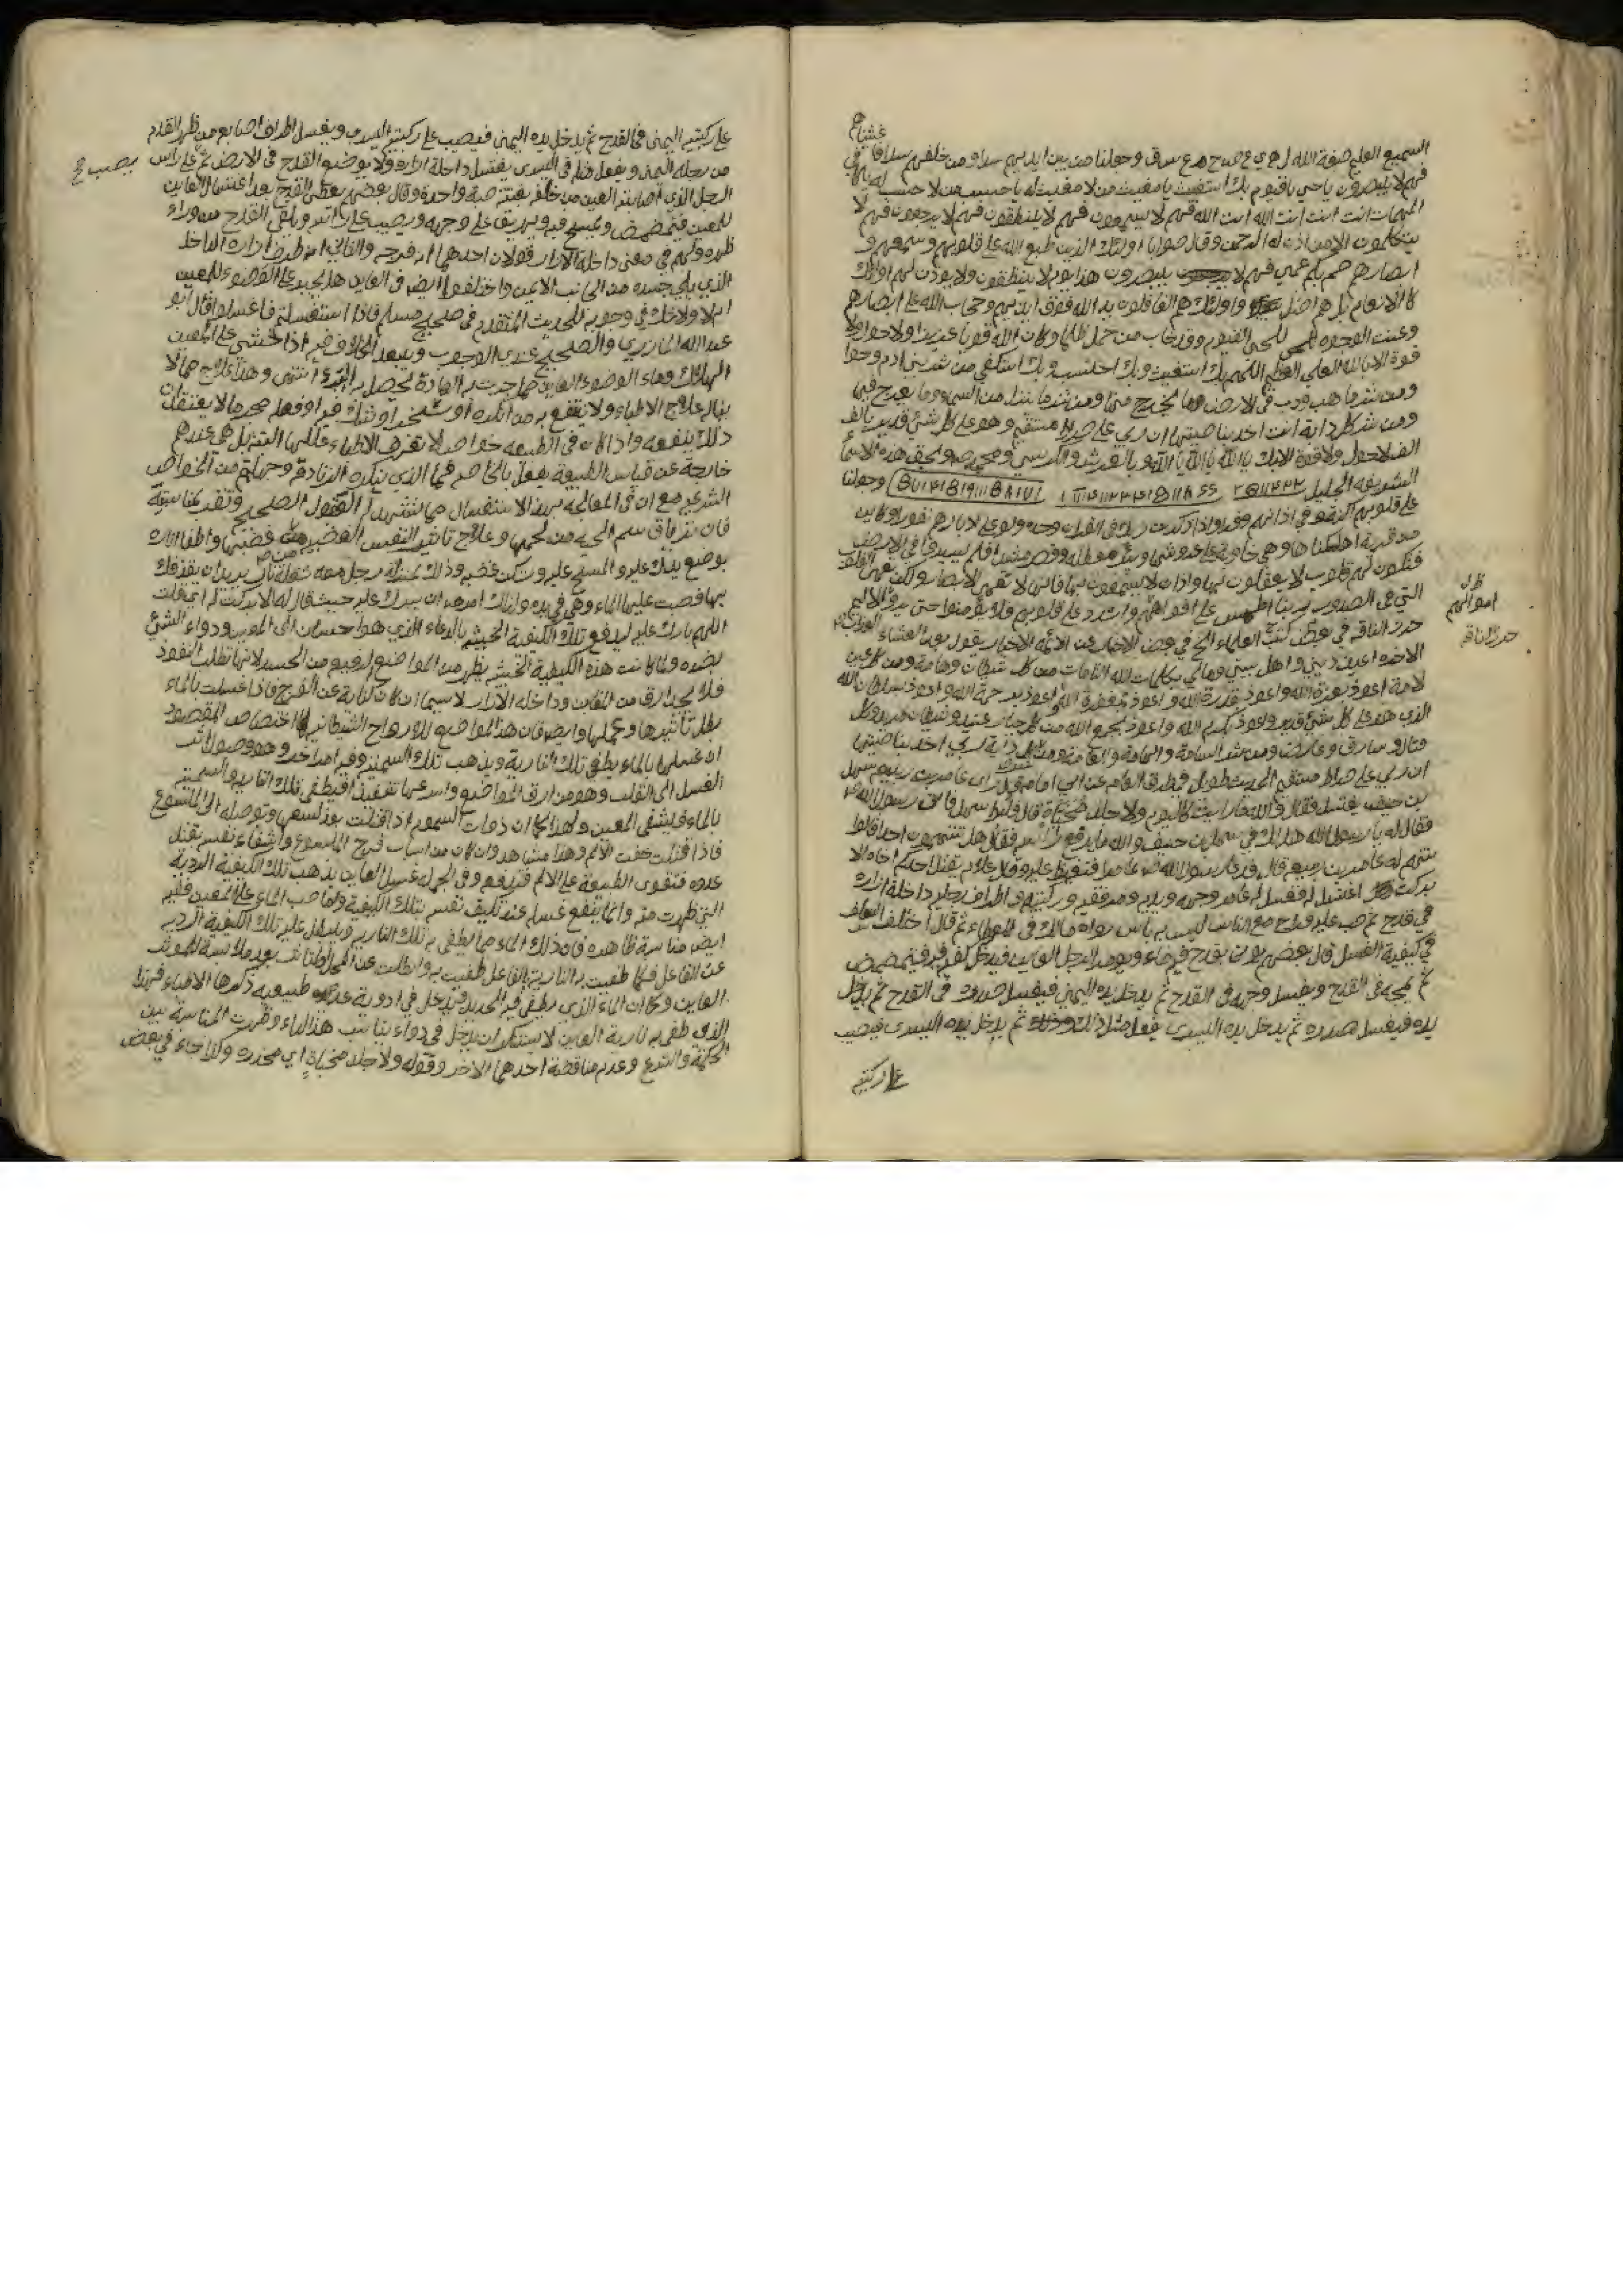 السميع العليم صنعة الله وجعلنا من بين ايديهم سدا ومن خلفهم سدا فاغشيناهم
فهم لا يبصرون يا حي يا قيوم بك استغيث يا مغيث من لا مغيث له يا حسيب من لا حسيب له
المهمات انت انت انت الله انت الله فهم لا يسمعون فهم لا ينطقون فهم لا يرجعون فهم لا
يتكلمون الا من اذن له الرحمن وقال صوابا اولئك الذين طبع الله على قلوبهم وسمعهم و
ابصارهم صم بكم عمي فهم لا يبصرون هذا يوم لا ينطقون ولا يؤذن لهم اولئك
كالانعام بل هم اضل واولئك هم الغافلون يد الله فوق ايديهم وحجاب الله على ابصارهم
وعنت الوجوه للحي القيوم وقد خاب من حمل ظلما وكان الله قويا عزيزا ولا حول ولا
قوة الا بالله العلي العظيم اللهم بك استغيث وبك احتسب وبك استكفي من شر بني ادم وحوا
ومن شر ما هب ودب في الارض وما يخرج منها ومن شر ما ينزل من السماء وما يعرج فيها
ومن شر كل دابة انت اخذ بناصيتها ان ربي على صراط مستقيم وهو على كل شئ قدير بالف
الف لاحول ولا قوة الا بك يا الله يا الله يا الله وبالعرش والكرسي وبحق هذه الاسما
الشريفه الجليل وجعلنا
على قلوبهم اكنة في اذانهم وقرا واذا ذكرت ربك في القران وحده ولو على ادبارهم نفورا وكاين
من قرية اهلكناها وهي خاوية على عروشها وبئر معطلة وقصر مشيد افلم يسيروا في الارض
فتكون لهم قلوب لا يعقلون بها واذان لا يسمعون بها فانها لا تعمى الابصار ولكن تعمى القلوب
التي في الصدور ربنا اطمس على افواههم واشدد على قلوبهم فلا يؤمنوا حتى يروا الاليم
حرز الناقة في بعض كتب العلماء الخ في بعض الاخبار عن الائمه الاخيار يقول بعد العشاء
الاخره اعيذ ديني واهل بيتي ومالي بكلمات الله التامات من كل شيطان وهامة ومن كل عين
لامة اعوذ بعزة الله واعوذ بقدرة الله واعوذ بمغفرة الله اعوذ برحمة الله واعوذ بسلطان الله
الذي هو على كل شئ قدير واعوذ بكرم الله واعوذ بجمع الله من كل جبار عنيد وشيطان مريد وكل
مغتال وسارق وعارض ومن شر السامة والهامة والعامة ومن شر كل دابة ربي اخذ بناصيتها
ان ربي على صراط مستقيم الحديث طويل في طرق العامه عن ابي امامة قال راى عامر بن ربيعه سهل
بن حنيف يغتسل فقال والله ما رايت كاليوم ولا جلد مخباة قال فلبط سهل فاتى رسول الله ص
فقال له يا رسول الله هل لك في سهل بن حنيف والله ما يرفع راسه فقال هل تتهمون احدا قالوا
نتهم له عامر بن ربيعه قال فدعا رسول الله ص عامرا فتغيظ عليه وقال علام يقتل احدكم اخاه الا
بركت اغتسل له فغسل له عامر وجهه ويديه ومرفقيه وركبتيه واطراف رجليه وداخلة ازاره
في قدح ثم صب عليه فراح مع الناس ليس به باس رواه مالك في الموطاء ثم قال اختلف
في كيفية الغسل قال بعضهم يؤتى بقدح فيه ماء ويؤمر الرجل العاين فيدخل كفه فيه فيتمضمض
ثم يمجه في القدح ويغسل وجهه في القدح ثم يدخل يده اليمنى فيغسل في القدح ثم يدخل
يده فيغسل صدره ثم يدخل يده اليسرى يفعل مثل ذلك ثم يدخل يده اليسرى فيصب
على ركبتيه
ظ ل
اموالهم
حرز الناقه
على ركبتيه اليمنى في القدح ثم يدخل يده اليمنى فيصب على ركبتيه اليسرى ويغسل اطراف اصابعه من ظهر القدم
من رجله اليمنى ويفعل مثله في اليسرى يغتسل داخلة ازاره ولا يوضع القدح في الارض ثم على راس
الرجل الذي اصابته العين من خلفه بغتة صبة واحدة وقال بعضهم يعطى القدح بعد اغتسال العاين
للمعين فيتمضمض ويمسح فيه ويهريق على وجهه ويصب على راسه ويلقي القدح من وراء
ظهره ولهم في معنى داخلة الازار قولان احدهما انه فرجه والثاني انه طرف ازاره الداخل
الذي يلي جسده من الجانب الايمن واختلفوا ايضا في العاين هل يجبر على الوضوء للمعين
ام لا ولا شك في وجوبه للحديث المتقدم في صحيح مسلم فاذا استغسلتم فاغسلوا قال ابو
عبد الله المازري والصحيح عندي الوجوب ويبعد الخلاف فيه اذا خشي على المعين
الهلاك وماء الوضوء العاين مما جرت به العادة يحصل به البرء انتهى وهذا علاج مما لا
يناله علاج الاطباء ولا ينتفع به من انكره او سخر او شك فيه او فعله مجربا لا يعتقد ان
ذلك ينفعه واذا كان في الطبيعه خواص لا تعرف الاطباء عللها البتة بل هي عندهم
خارجة عن قياس الطبيعة يفعل بالخاصه فما الذي ينكره الزنادقة وجهلتهم من الخواص
الشرعيه مع ان في المعالجه بهذا الاستغسال ما تشهد له العقول الصحيح وتقر بمناسبته
فان ترياق سم الحية من لحمها وعلاج تاثير النفس الغضبيه من غضبها واطفا ناره
بوضع يدك عليه والمسح عليه وتسكن غضبه وذلك بمنزلة رجل معه شعلة نار يريد ان يقذفك
بها فصبت عليها الماء وهي في يده ولذلك امره ان يبرك عليه حيث قال له الا بركت له اي قلت
اللهم بارك عليه ليدفع تلك الكيفية الخبيثه بالدعاء الذي هو احسان الى المعين ودواء الشئ
بضده ولما كانت هذه الكيفية الخبيثه يظهر من المواضع الرقيقه من الجسد لانها تطلب النفوذ
فلا يجد ارق من المغابن وداخله الازار لا سيما ان كان كناية عن الفرج فاذا غسلت بالماء
بطل تاثيرها وعملها وايضا فان هذه المواضع للارواح الشيطانيه بها اختصاص المقصود
ان غسلها بالماء يطفي تلك النارية ويذهب تلك السميه وفيه امر اخر وهو وصول اثر
الغسل الى القلب وهو من ارق المواضع واسرعها تنفيذا فيطفي تلك الناريه والسميه
بالماء فيشفى المعين ولهذا كما ان ذوات السموم اذا قتلت بعد لسعها وتوصله الى الملسوع
فاذا قتلت خفت الالم وهذا مشاهد وان كان من اسباب فرح الملسوع واشفاء نفسه بقتل
عدوه فتقوى الطبيعة على الالم فتدفعه وفي الجملة غسل العاين يذهب تلك الكيفية الردية
التي ظهرت منه وانما ينفع غسله عند تكيف نفسه بتلك الكيفية واما صب الماء على المعين ففيه
ايضا مناسبة ظاهره فان ذلك الماء مما يطفي به تلك الناريه ويبطل عليه تلك الكيفية الرديه
عن الفاعل فكما طفيت به النارية بالفاعل طفيت به وابطلت عن المحل بعد ملابسة للموثر
العاين وكما ان الماء الذي يطفي فيه الحديد يدخل في ادوية عده طبيعيه ذكرها الاطباء فهذا
الذي طفي به نارية العاين لا يستنكر ان يدخل في دواء يناسب هذا الداء وظهرت المناسبة بين
الحكمة والشرع وعدم مناقضة احدهما الاخر وقوله ولا جلد مخباة اي مخدره وكما جاء في بعض
يصب ح